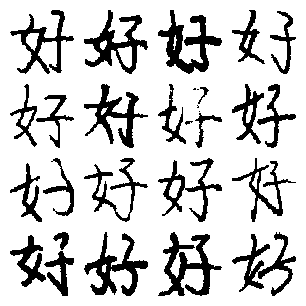 好好好好
好好好好
好好好好
好好好好